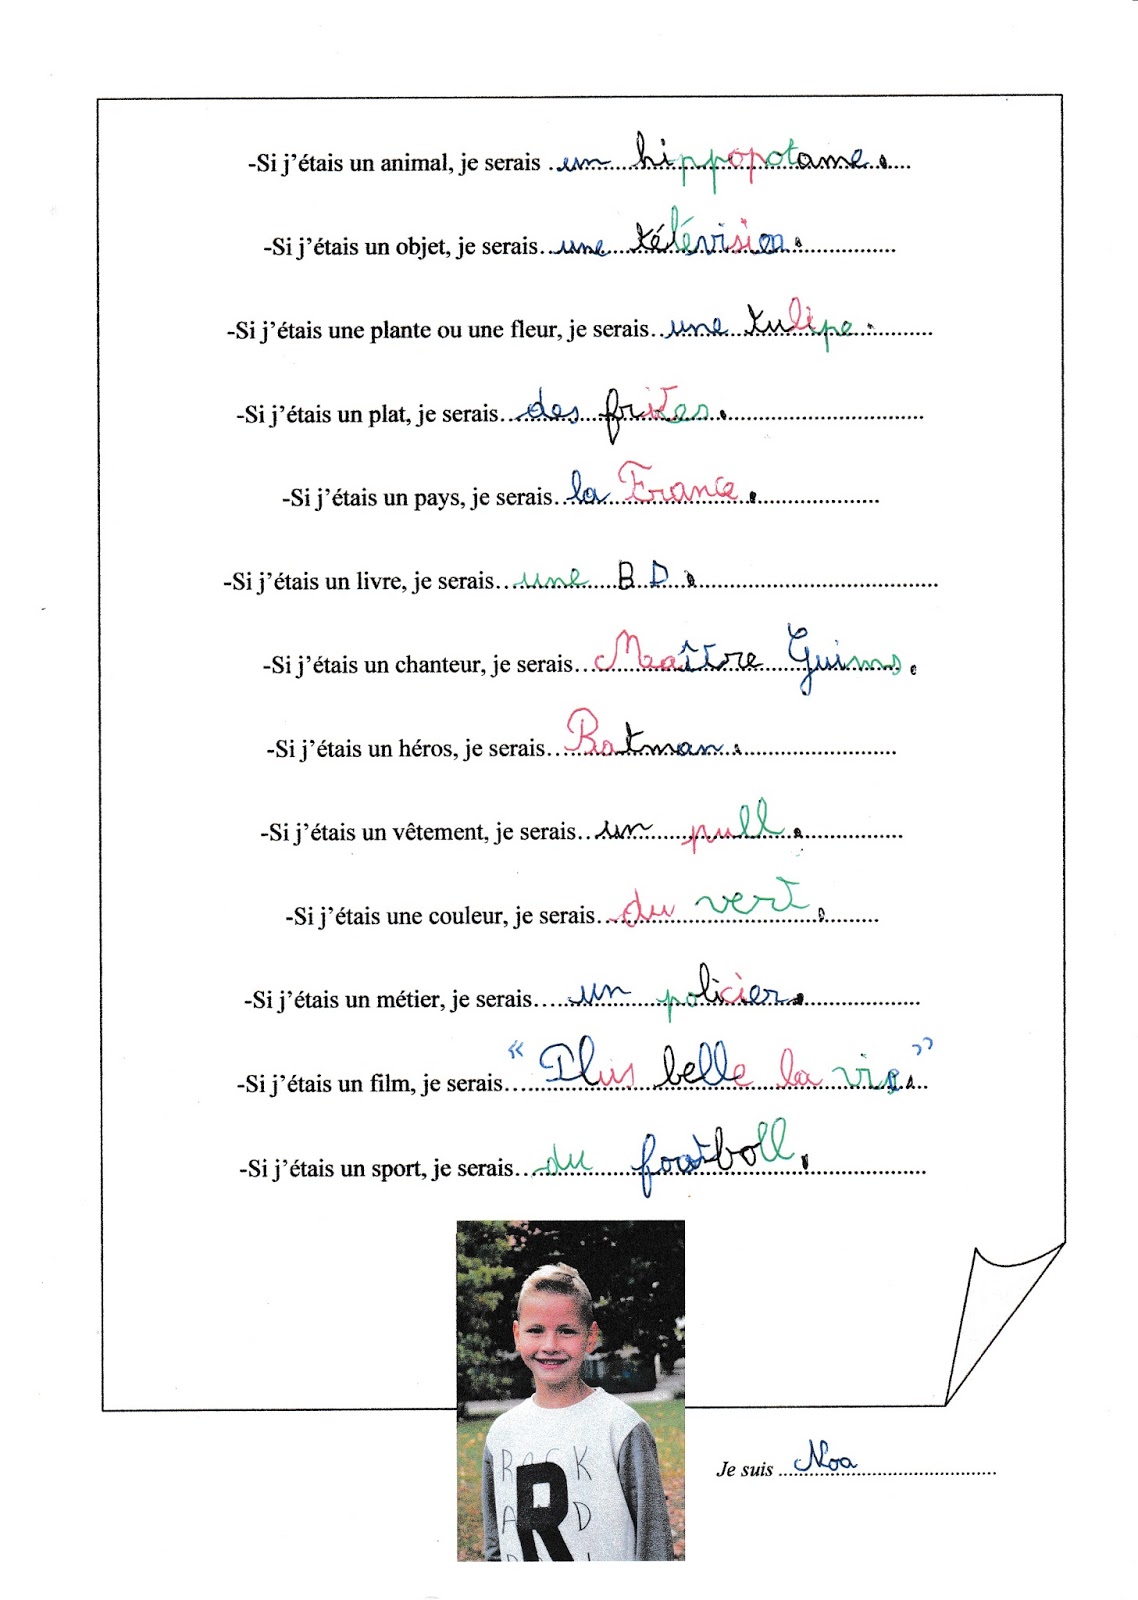 -Si j'étais un animal, je serais un hippopotame.
-Si j'étais un objet, je serais une télévision.
-Si j'étais une plante ou une fleur, je serais une tulipe.
-Si j'étais un plat, je serais des frites.
-Si j'étais un pays, je serais la France.
-Si j'étais un livre, je serais une BD.
-Si j'étais un chanteur, je serais Maître Guims.
-Si j'étais un héros, je serais Batman.
-Si j'étais un vêtement, je serais un pull.
-Si j'étais une couleur, je serais du vert.
-Si j'étais un métier, je serais un policier.
-Si j'étais un film, je serais "Plus belle la vie."
-Si j'étais un sport, je serais du footboll.
R
Je suis Noa